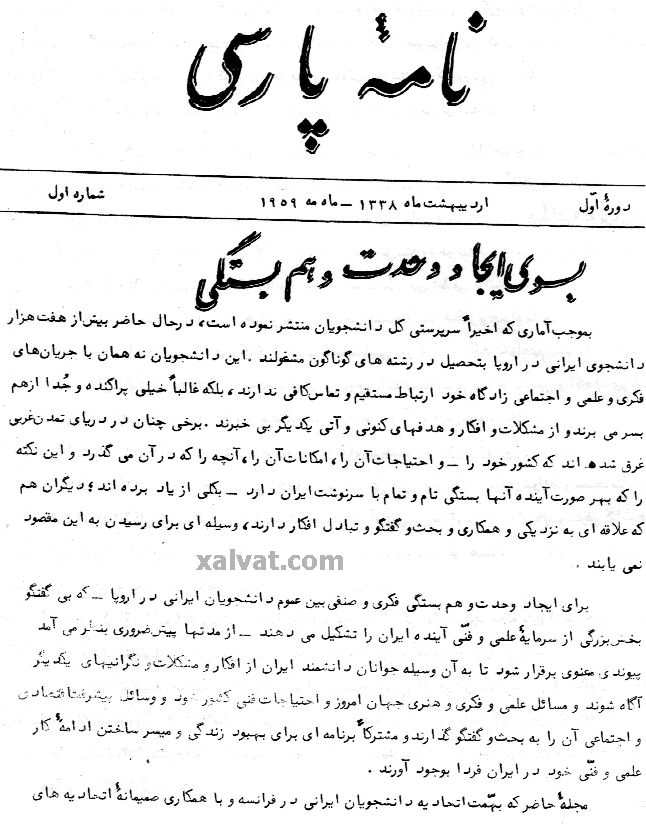 نامهٔ پارسی
دورهٔ اوّل
اردیبهشت ماه ۱۳۳۸ – ماه مه ۱۹۵۹
شماره اول
بسوی ایجاد وحدت و هم بستگی
بموجب آماری که اخیراً سرپرستی کل دانشجویان منتشر نموده است، درحال حاضر بیش از هفت هزار
دانشجوی ایرانی در اروپا بتحصیل در رشته های گوناگون مشغولند. این دانشجویان نه همان با جریان‌های
فکری و علمی و اجتماعی زادگاه خود ارتباط مستقیم و تماس کافی ندارند، بلکه غالباً خیلی پراکنده و جُدا ازهم
بسر می برند و از مشکلات و افکار و هدفهای کنونی و آتی یکدیگر بی خبرند. برخی چنان در دریای تمدن غربی
غرق شده اند که کشور خود را – و احتیاجات آن را، امکانات آن را، آنچه را که در آن می گذرد و این نکته
را که بهر صورت آینده آنها بستگی تام و تمام با سرنوشت ایران دارد – بکلی از یاد برده اند؛ دیگران هم
که علاقه ای به نزدیکی و همکاری و بحث و گفتگو و تبادل افکار دارند، وسیله ای برای رسیدن به این مقصود
نمی یابند.
xalvat.com
برای ایجاد وحدت و هم بستگی فکری و صنفی بین عموم دانشجویان ایرانی در اروپا – که بی گفتگو
بخش بزرگی از سرمایهٔ علمی و فنّی آینده ایران را تشکیل می دهند – از مدتها پیش ضروری بنظر می آمد
پیوندی معنوی برقرار شود تا به آن وسیله جوانان دانشمند ایران از افکار و مشکلات و نگرانیهای یکدیگر
آگاه شوند و مسائل علمی و فکری و هنری جهان امروز و احتیاجات فنی کشور خود و وسائل پیشرفت اقتصادی
و اجتماعی آن را به بحث و گفتگو گذارند و مشترکاً برنامه ای برای بهبود زندگی و میسر ساختن ادامهٔ کار
علمی و فنّی خود در ایران فردا بوجود آورند.
مجلهٔ حاضر که بهمّت اتحادیه دانشجویان ایرانی در فرانسه و با همکاری صمیمانهٔ اتحادیه های